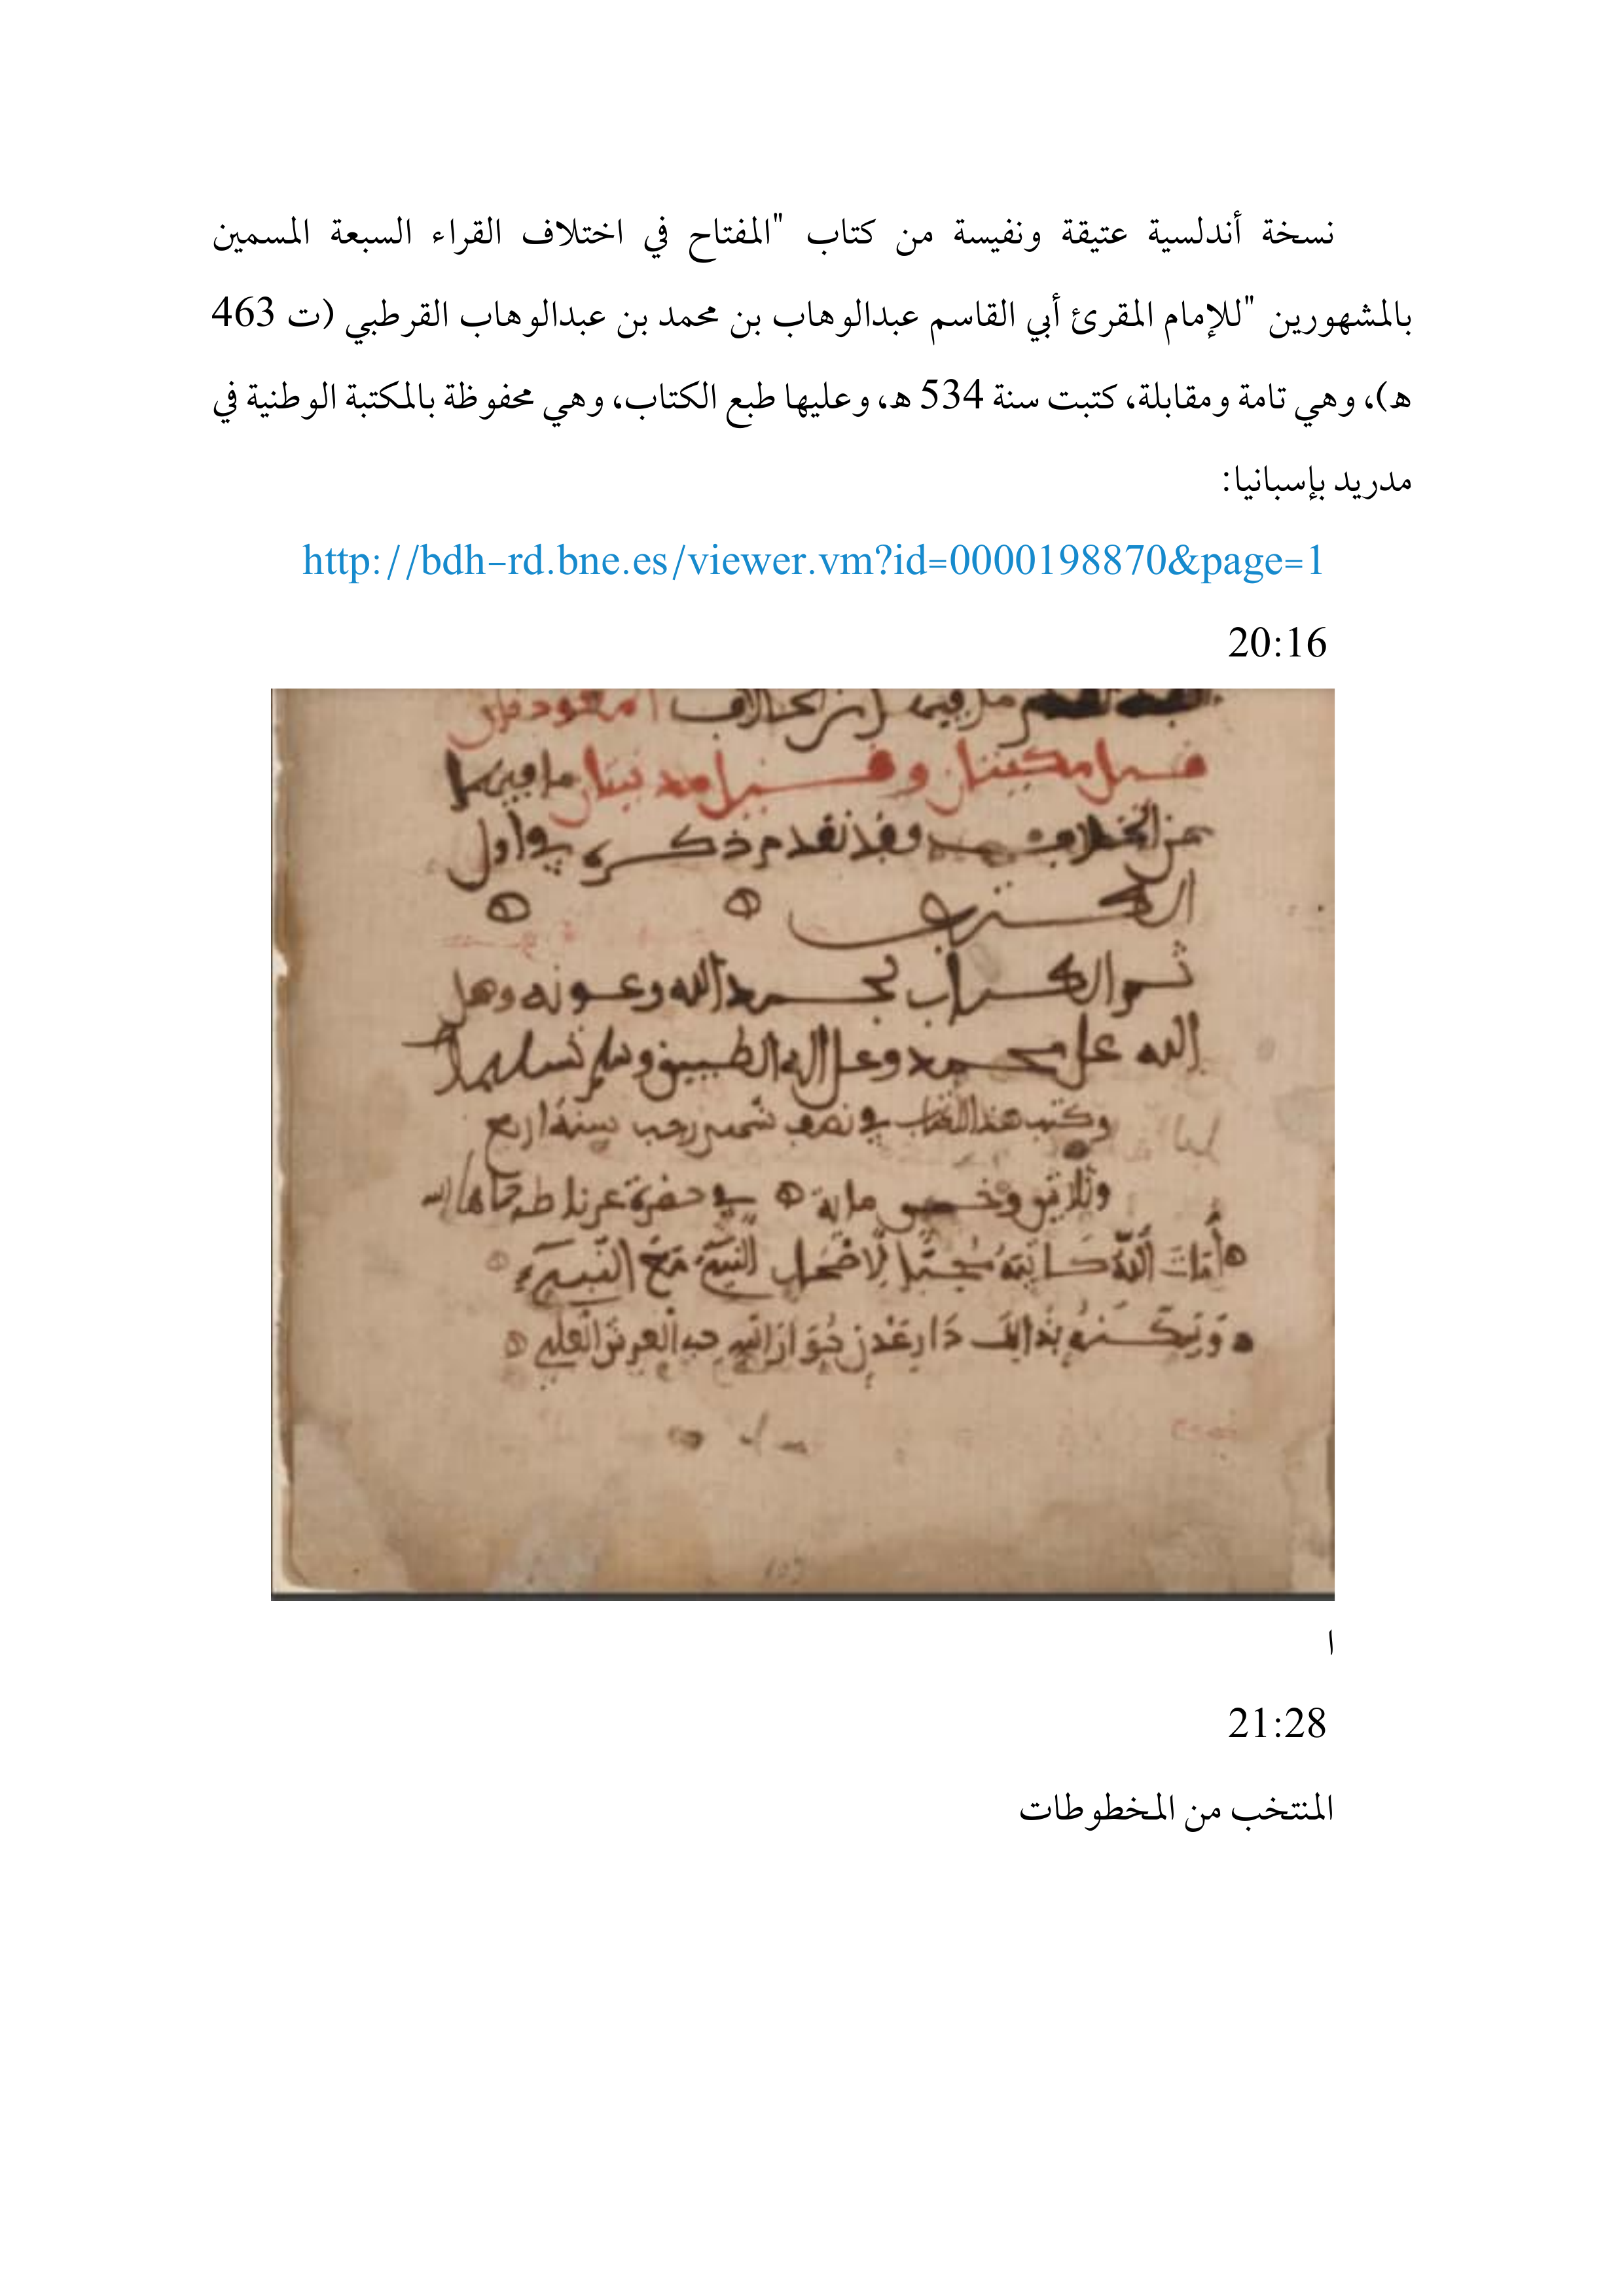 نسخة أندلسية عتيقة ونفيسة من كتاب "المفتاح في اختلاف القراء السبعة المسمين
بالمشهورين "للإمام المقرئ أبي القاسم عبدالوهاب بن محمد بن عبدالوهاب القرطبي (ت 463
هـ)، وهي تامة ومقابلة، كتبت سنة 534 هـ، وعليها طبع الكتاب، وهي محفوظة بالمكتبة الوطنية في
مدريد بإسبانيا:
http://bdh-rd.bne.es/viewer.vm?id=0000198870&page=1
20:16
ما فيها من الخلاف المعوذتان
قيل مكيتان وقيل مدنيتان ما فيهما
من الخلاف وقد تقدم ذكره في أول
الكتاب
تم الكتاب بحمد الله وعونه وصلى
الله على محمد وعلى اله الطيبين وسلم تسليما
وكتب هذا الكتاب في نصف شهر رجب سنة اربع
وثلاثين وخمس ماية في حضرة غرناطة حماها الله
أمات الله كاتبه
دار عدن جوار العرش العلي
ا
21:28
المنتخب من المخطوطات